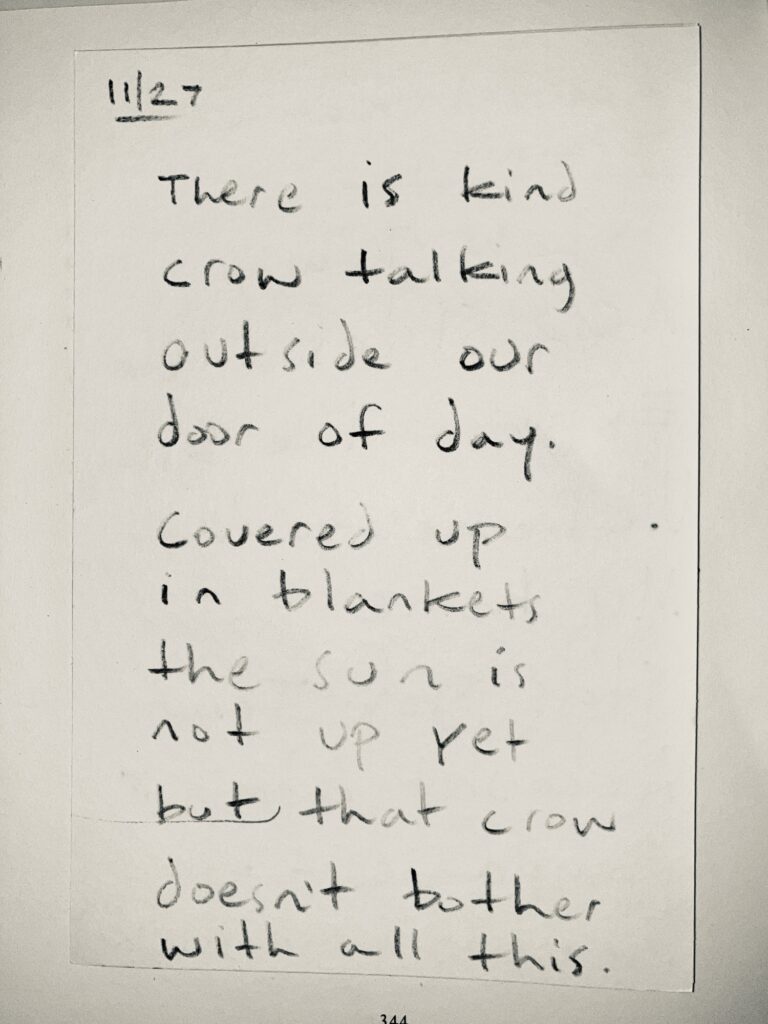 11/27
There is kind
crow talking
outside our
door of day.
Covered up
in blankets
the sun is
not up yet
but that crow
doesn't bother
with all this.
344